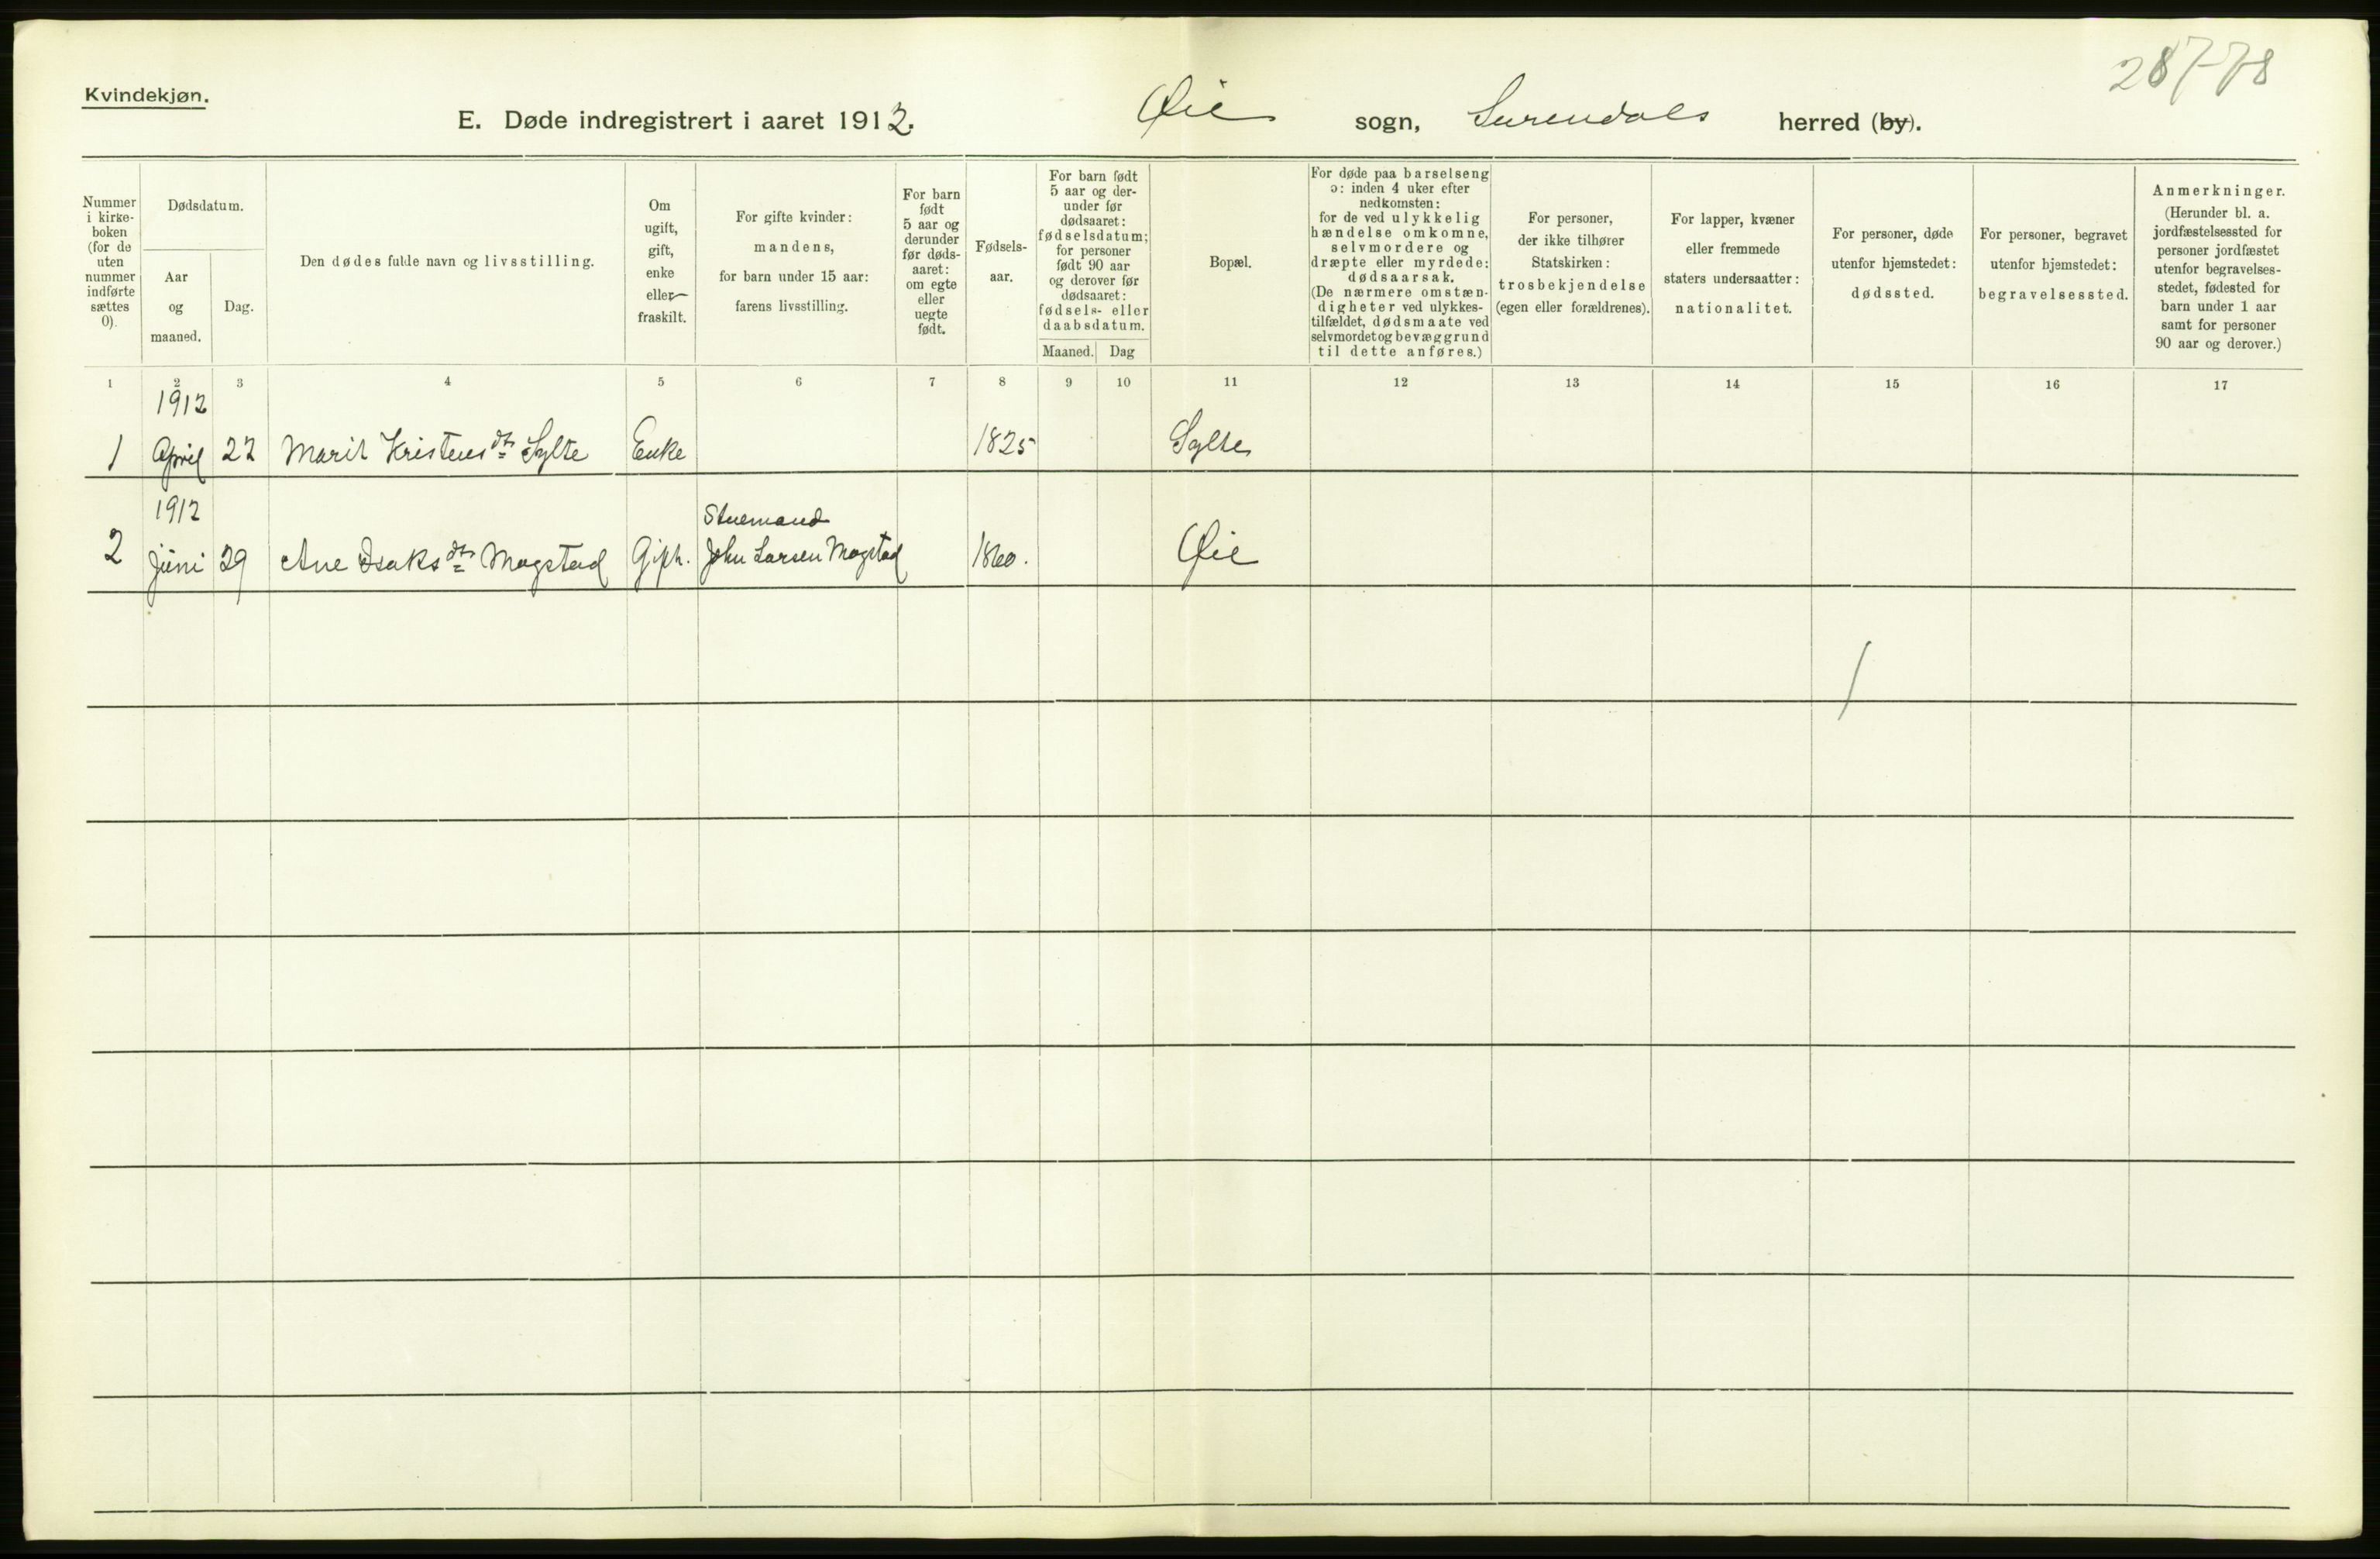 287-78
Kvindekjøn.
E. Døde indregistrert i aaret 1912. Øie sogn, Surendals herred (by).
Nummer i kirke- boken (for de uten nummer indførte sættes 0).
Dødsdatum.
Aar og maaned.
Dag.
Den dødes fulde navn og livsstilling.
Om ugift, gift, enke eller fraskilt.
For gifte kvinder: mandens, for barn under 15 aar: farens livsstilling.
For barn født 5 aar og derunder før døds- aaret: om egte eller uegte født.
Fødsels- aar.
For barn født 5 aar og der- under før dødsaaret: fødselsdatum; for personer født 90 aar og derover før dødsaaret: fødsels- eller daabsdatum.
Maaned. Dag
Bopæl.
For døde paa barselseng ɔ: inden 4 uker efter nedkomsten: for de ved ulykkelig hændelse omkomne, selvmordere og dræpte eller myrdede: dødsaarsak. (De nærmere omstæn- digheter ved ulykkes- tilfældet, dødsmaate ved selvmordet og bevæggrund til dette anføres.)
For personer, der ikke tilhører Statskirken: trosbekjendelse (egen eller forældrenes).
For lapper, kvæner eller fremmede staters undersaatter: nationalitet.
For personer, døde utenfor hjemstedet: dødssted.
For personer, begravet utenfor hjemstedet: begravelsessted.
Anmerkninger. (Herunder bl. a. jordfæstelsessted for personer jordfæstet utenfor begravelses- stedet, fødested for barn under 1 aar samt for personer 90 aar og derover.)
1 2 3 4 5 6 7 8 9 10 11 12 13 14 15 16 17
1912
1 April 22 Marit Kristensdtr Sylte Enke 1825 Sylte
1912 Stuemand
2 Juni 29 Ane Isaksdtr Magstad Gift. John Larsen Magstad 1860. Øie